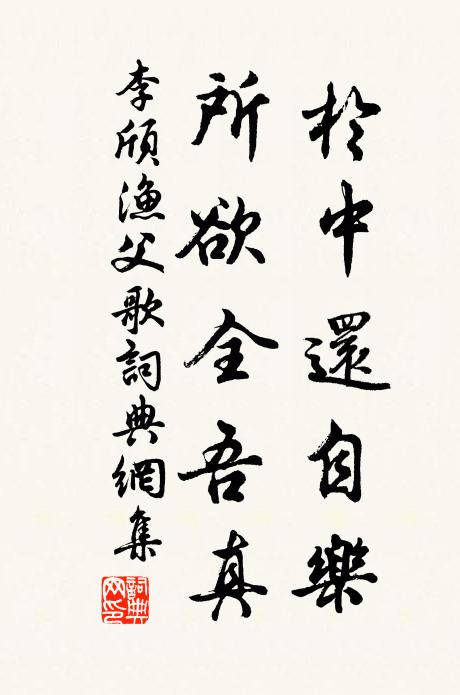 於中還自樂
所欲全吾真
李頎漁父歌詞典網集
詞典網印